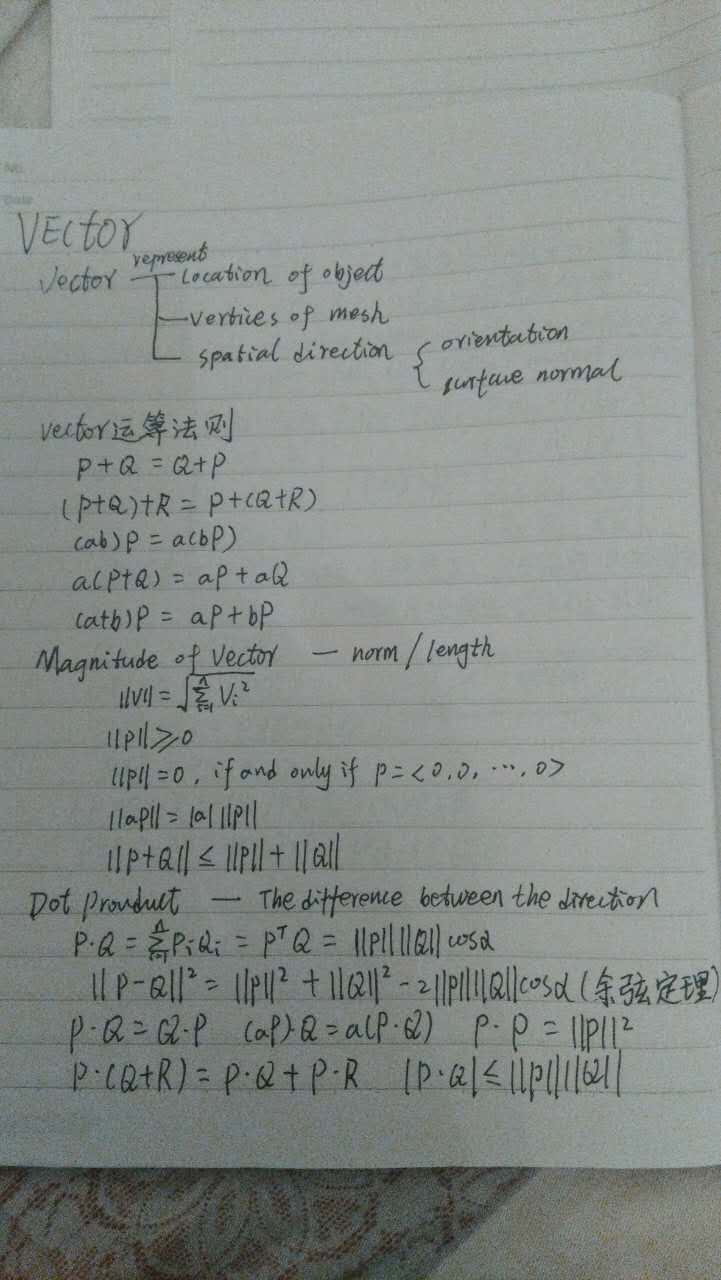 VECtOr
Vector represent location of object
vertices of mesh
spatial direction { orientation
surface normal
vector运算法则
P+Q = Q+P
(P+Q)+R = P+(Q+R)
(ab)P = a(bP)
a(P+Q) = aP+aQ
(a+b)P = aP+bP
Magnitude of Vector — norm/length
||V|| = √∑ⁿᵢ₌₁ Vᵢ²
||P|| ⩾ 0
||P|| = 0, if and only if P = <0,0,⋯,0>
||aP|| = |a| ||P||
||P+Q|| ≤ ||P|| + ||Q||
Dot Prouduct — The difference between the direction
P·Q = ∑ⁿᵢ₌₁ PᵢQᵢ = PᵀQ = ||P|| ||Q|| cosα
||P-Q||² = ||P||² + ||Q||² - 2||P|| ||Q|| cosα (余弦定理)
P·Q = Q·P (aP)·Q = a(P·Q) P·P = ||P||²
P·(Q+R) = P·Q + P·R |P·Q| ≤ ||P|| ||Q||